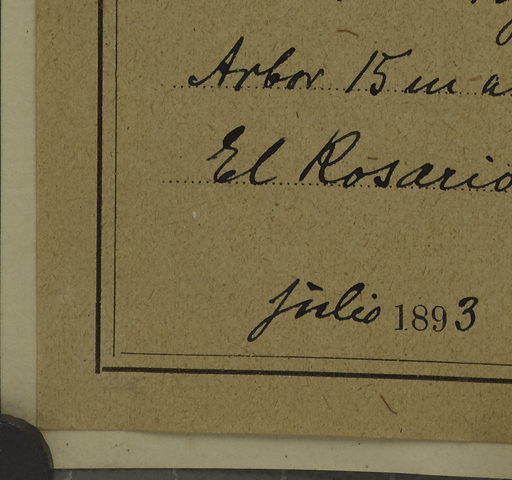 Arbor 15 m a
El Rosario
julio 1893